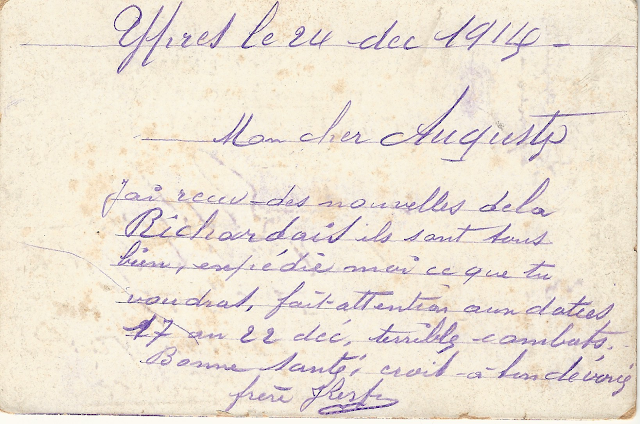 Ypres le 24 dec 1914
Mon cher Auguste
J'ai recu des nouvelles de la
Richardais ils sont tous
bien, expédie moi ce que tu
voudras, fait attention aux dates
17 au 22 déc, terrible combats.
Bonne santé, croit à ton dévoué
frère